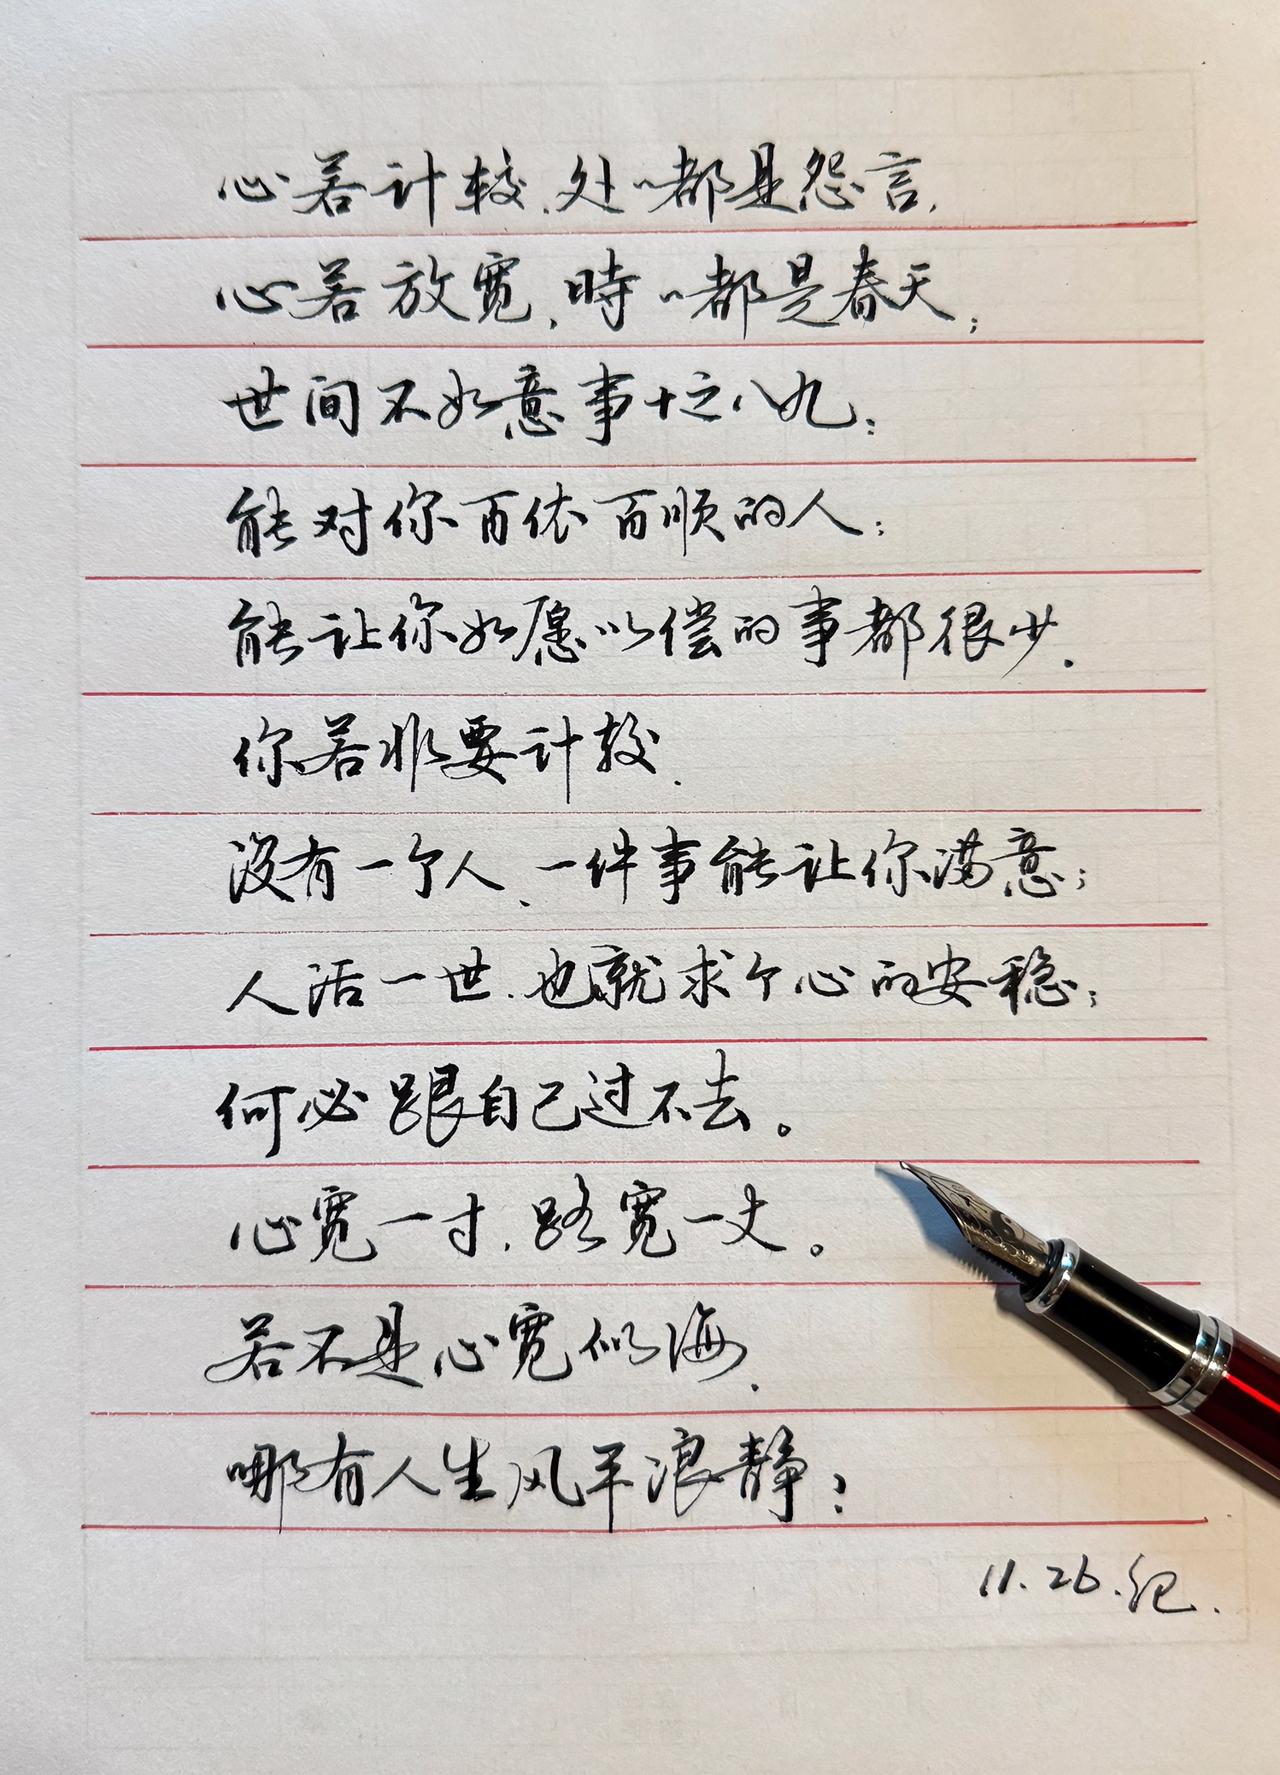 心若计较.处〻都是怨言,
心若放宽,時〻都是春天;
世间不如意事十之八九;
能对你百依百顺的人;
能让你如愿以偿的事都很少.
你若非要计较.
没有一个人、一件事能让你满意;
人活一世.也就求个心的安稳;
何必跟自己过不去。
心宽一寸.路宽一丈。
若不是心宽似海.
哪有人生风平浪静?
11.26.纪.